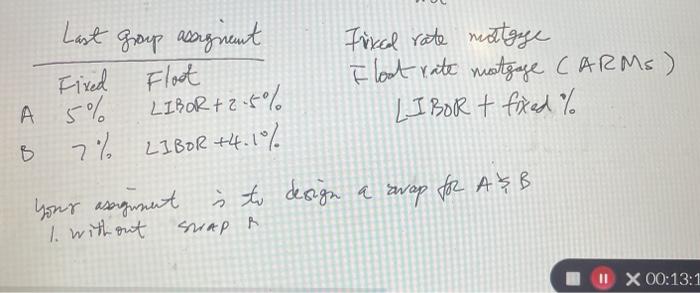 Last group assignment
Fixed Float
A 5% LIBOR + 2.5%
B 7% LIBOR + 4.1%
Fixed rate mortgage
Float rate mortgage (ARMs)
LIBOR + fixed %
Your assignment is to design a swap for A & B
1. without swap A
00:13:1